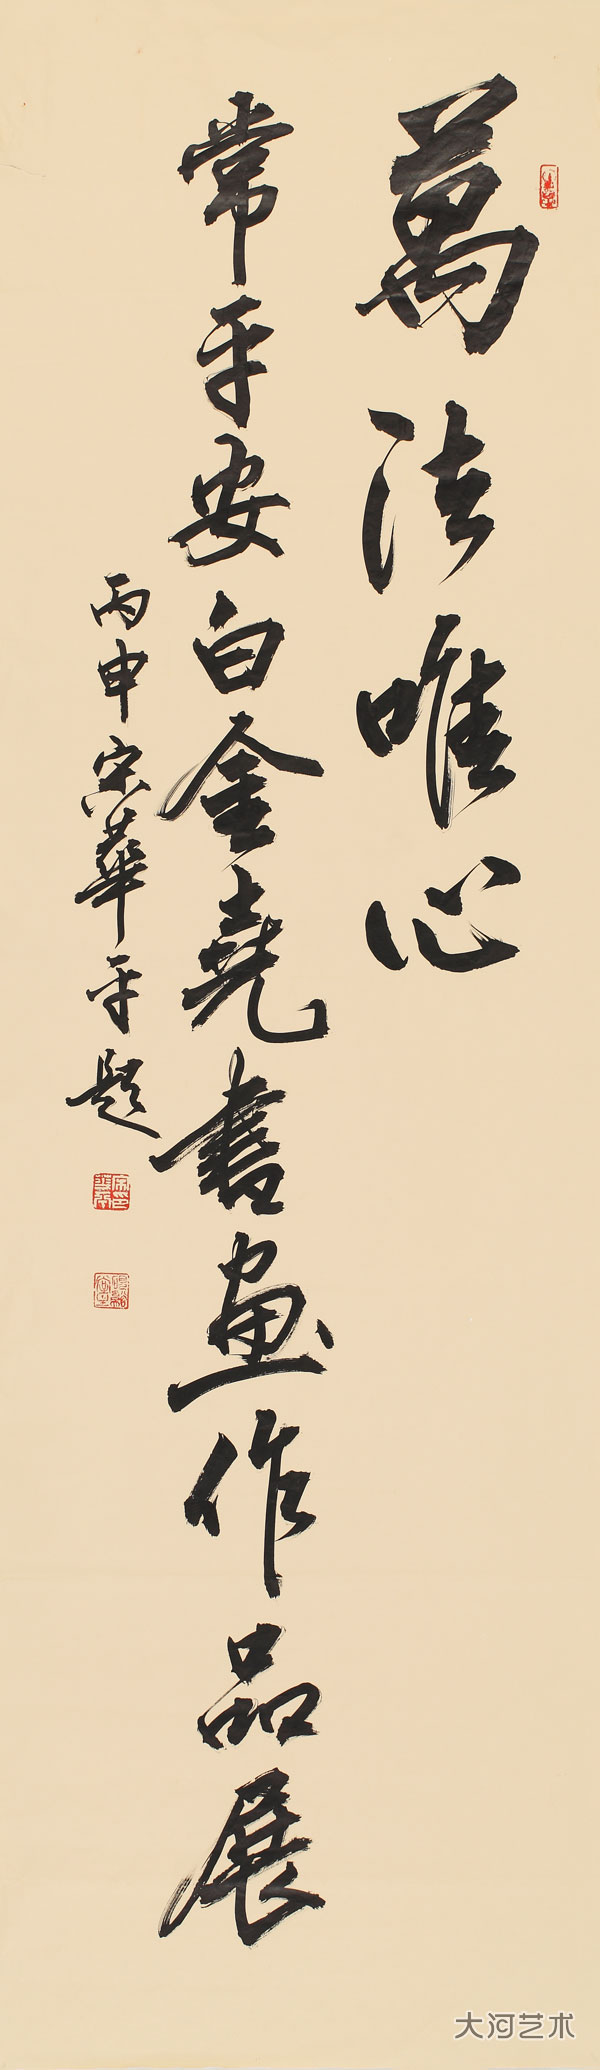 萬法唯心
常平安白金尧書画作品展
丙申宋華平題
大河艺术